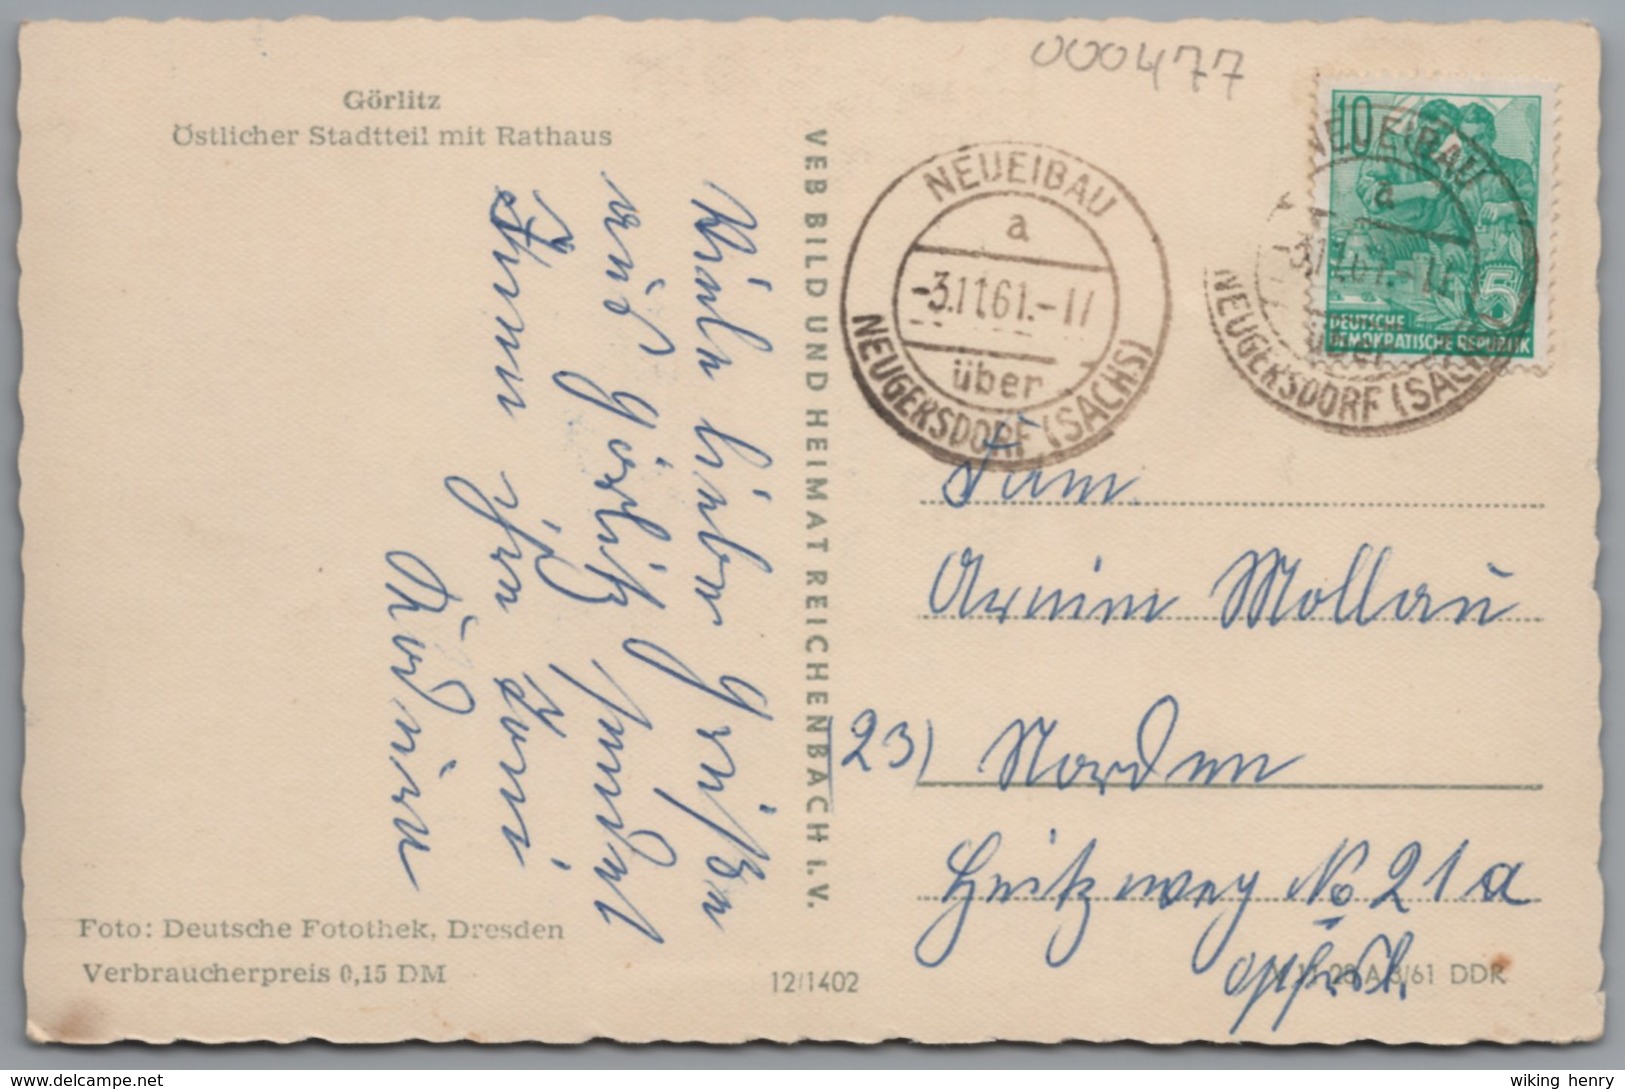 000477
Görlitz
Östlicher Stadtteil mit Rathaus
Viele liebe Grüße
aus Görlitz sendet
Ihnen Ihre
VEB BILD UND HEIMAT REICHENBACH I.V.
NEUEIBAU
a
-3.11.61.-17
über
NEUGERSDORF (SACHS)
NEUEIBAU
a
3.11.61.-17
über
NEUGERSDORF (SACHS)
10
5
DEUTSCHE
DEMOKRATISCHE REPUBLIK
Fam.
Armin Mollau
(23) Norden
Heitzweg No 21a
Foto: Deutsche Fotothek, Dresden
Verbraucherpreis 0,15 DM
12/1402
A 3/61 DDR
wiking henry